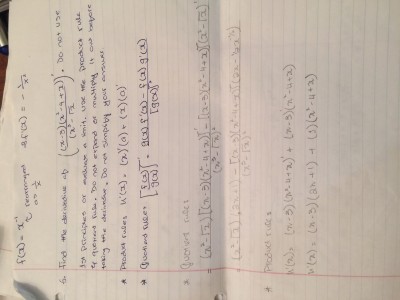 f(x) = x⁻¹
rearranged
n = 1/x
2f'(x) = - 1/x²
5. Find the derivative of ((x-5)(x²-4+x) / (x³-√x)). Do not use
1st principles or evaluate a limit. Use the product rule
& quotient rule. Do not expand or multiply it out before
taking the derivative. Do not simplify your answer.
* Product rule: h'(x) = (x)'(0) + (x)(0)'
* Quotient rule: [f(x)/g(x)]' = g(x) f'(x) - f(x) g'(x) / [g(x)]²
* Quotient rule:
= (x³-√x)[(x-5)(x²-4+x)]' - [(x-5)(x²-4+x)][x³-√x]' / (x³-√x)²
* Product rule:
h'(x) = (x-5)(x²-4+x)' + (x-5)'(x²-4+x)
h'(x) = (x-5)(2x+1) + (1)(x²-4+x)